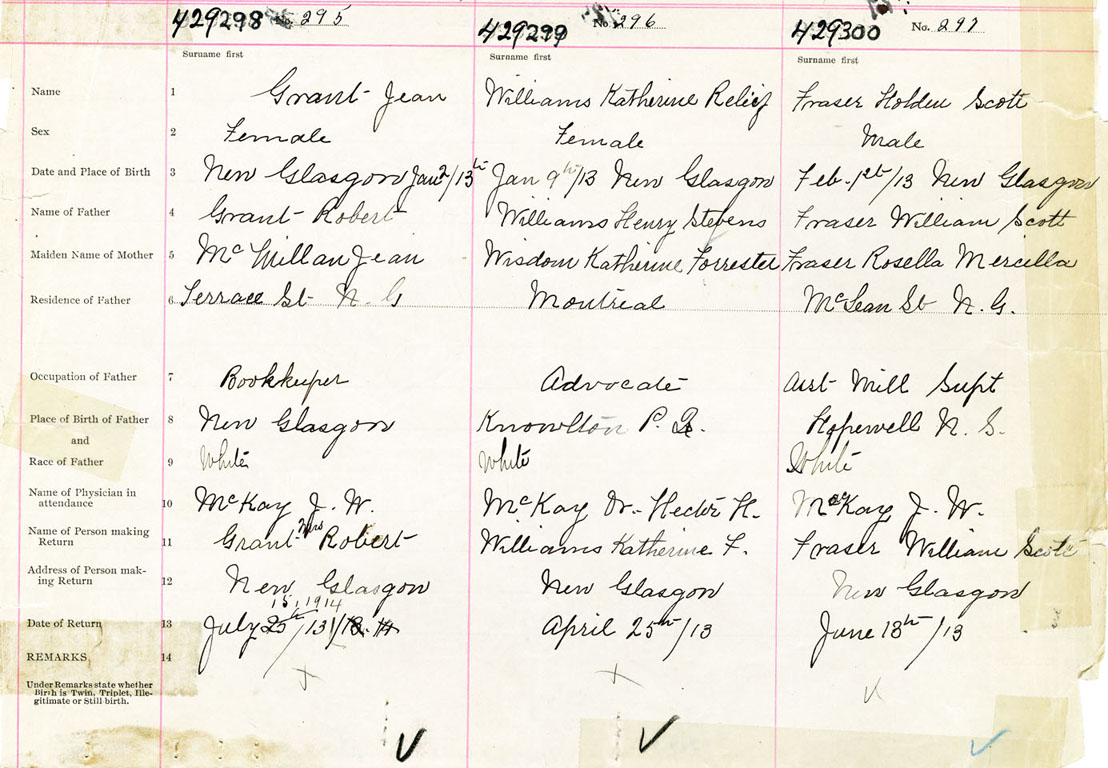 429298 No. 295 429299 No. 296 429300 No. 297
Surname first Surname first Surname first
Name 1 Grant Jean Williams Katherine Relief Fraser Holden Scott
Sex 2 Female Female Male
Date and Place of Birth 3 New Glasgow Jan 2/13th Jan 9th/13 New Glasgow Feb. 1st/13 New Glasgow
Name of Father 4 Grant Robert Williams Henry Stevens Fraser William Scott
Maiden Name of Mother 5 McMillan Jean Wisdom Katherine Forrester Fraser Rosella Mercella
Residence of Father 6 Terrace St N. G Montreal McLean St N. G.
Occupation of Father 7 Bookkeeper Advocate Asst Mill Supt
Place of Birth of Father 8 New Glasgow Knowlton P. Q. Hopewell N. S.
and
Race of Father 9 White White White
Name of Physician in
attendance 10 McKay J. W. McKay Dr. Hector H. McKay J. W.
Name of Person making
Return 11 Grant Mrs Robert Williams Katherine F. Fraser William Scott
Address of Person mak-
ing Return 12 New Glasgow New Glasgow New Glasgow
15, 1914
Date of Return 13 July 25th/13 April 25th/13 June 18th/13
REMARKS 14
Under Remarks state whether
Birth is Twin, Triplet, Ille-
gitimate or Still birth.